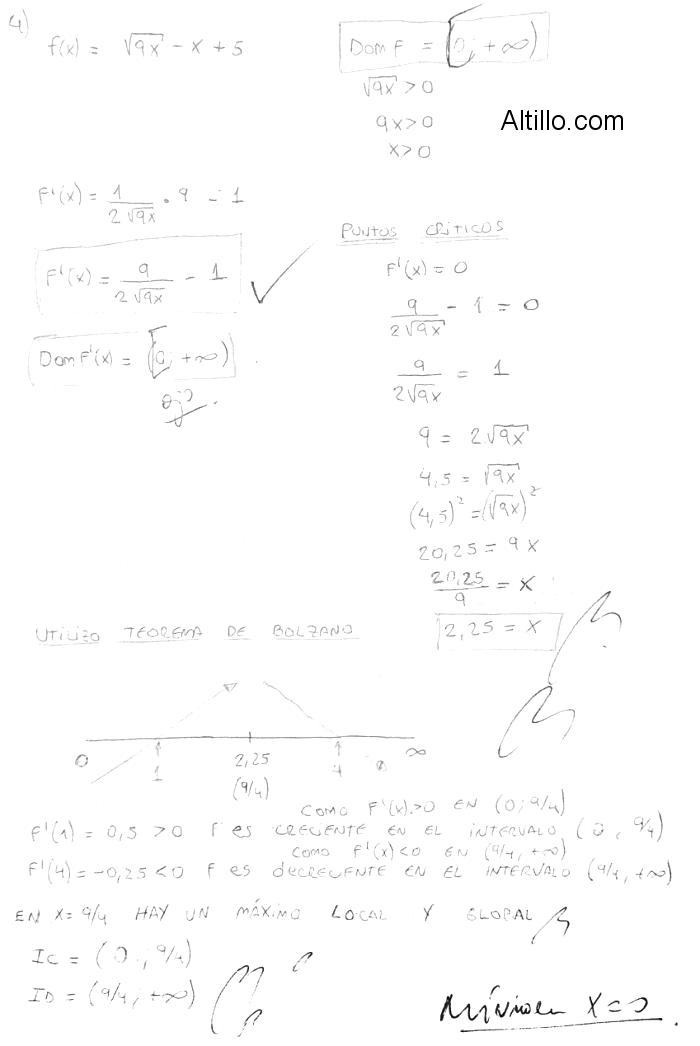 4)
f(x) = √9x - x + 5
Dom F = [0; +∞)
√9x > 0
9x > 0
x > 0
Altillo.com
F'(x) = 1/(2√9x) · 9 - 1
F'(x) = 9/(2√9x) - 1
Dom F'(x) = [0; +∞)
ojo
PUNTOS CRÍTICOS
F'(x) = 0
9/(2√9x) - 1 = 0
9/(2√9x) = 1
9 = 2√9x
4,5 = √9x
(4,5)² = (√9x)²
20,25 = 9x
20,25/9 = x
2,25 = x
UTILIZO TEOREMA DE BOLZANO
0 1 2,25 4 ∞
(9/4)
COMO F'(x) > 0 EN (0; 9/4)
F'(1) = 0,5 > 0 F es CRECIENTE EN EL INTERVALO (0, 9/4)
COMO F'(x) < 0 EN (9/4, +∞)
F'(4) = -0,25 < 0 F es decreciente EN EL INTERVALO (9/4, +∞)
EN X = 9/4 HAY UN MÁXIMO LOCAL Y GLOBAL
IC = (0; 9/4)
ID = (9/4; +∞)
X = 0